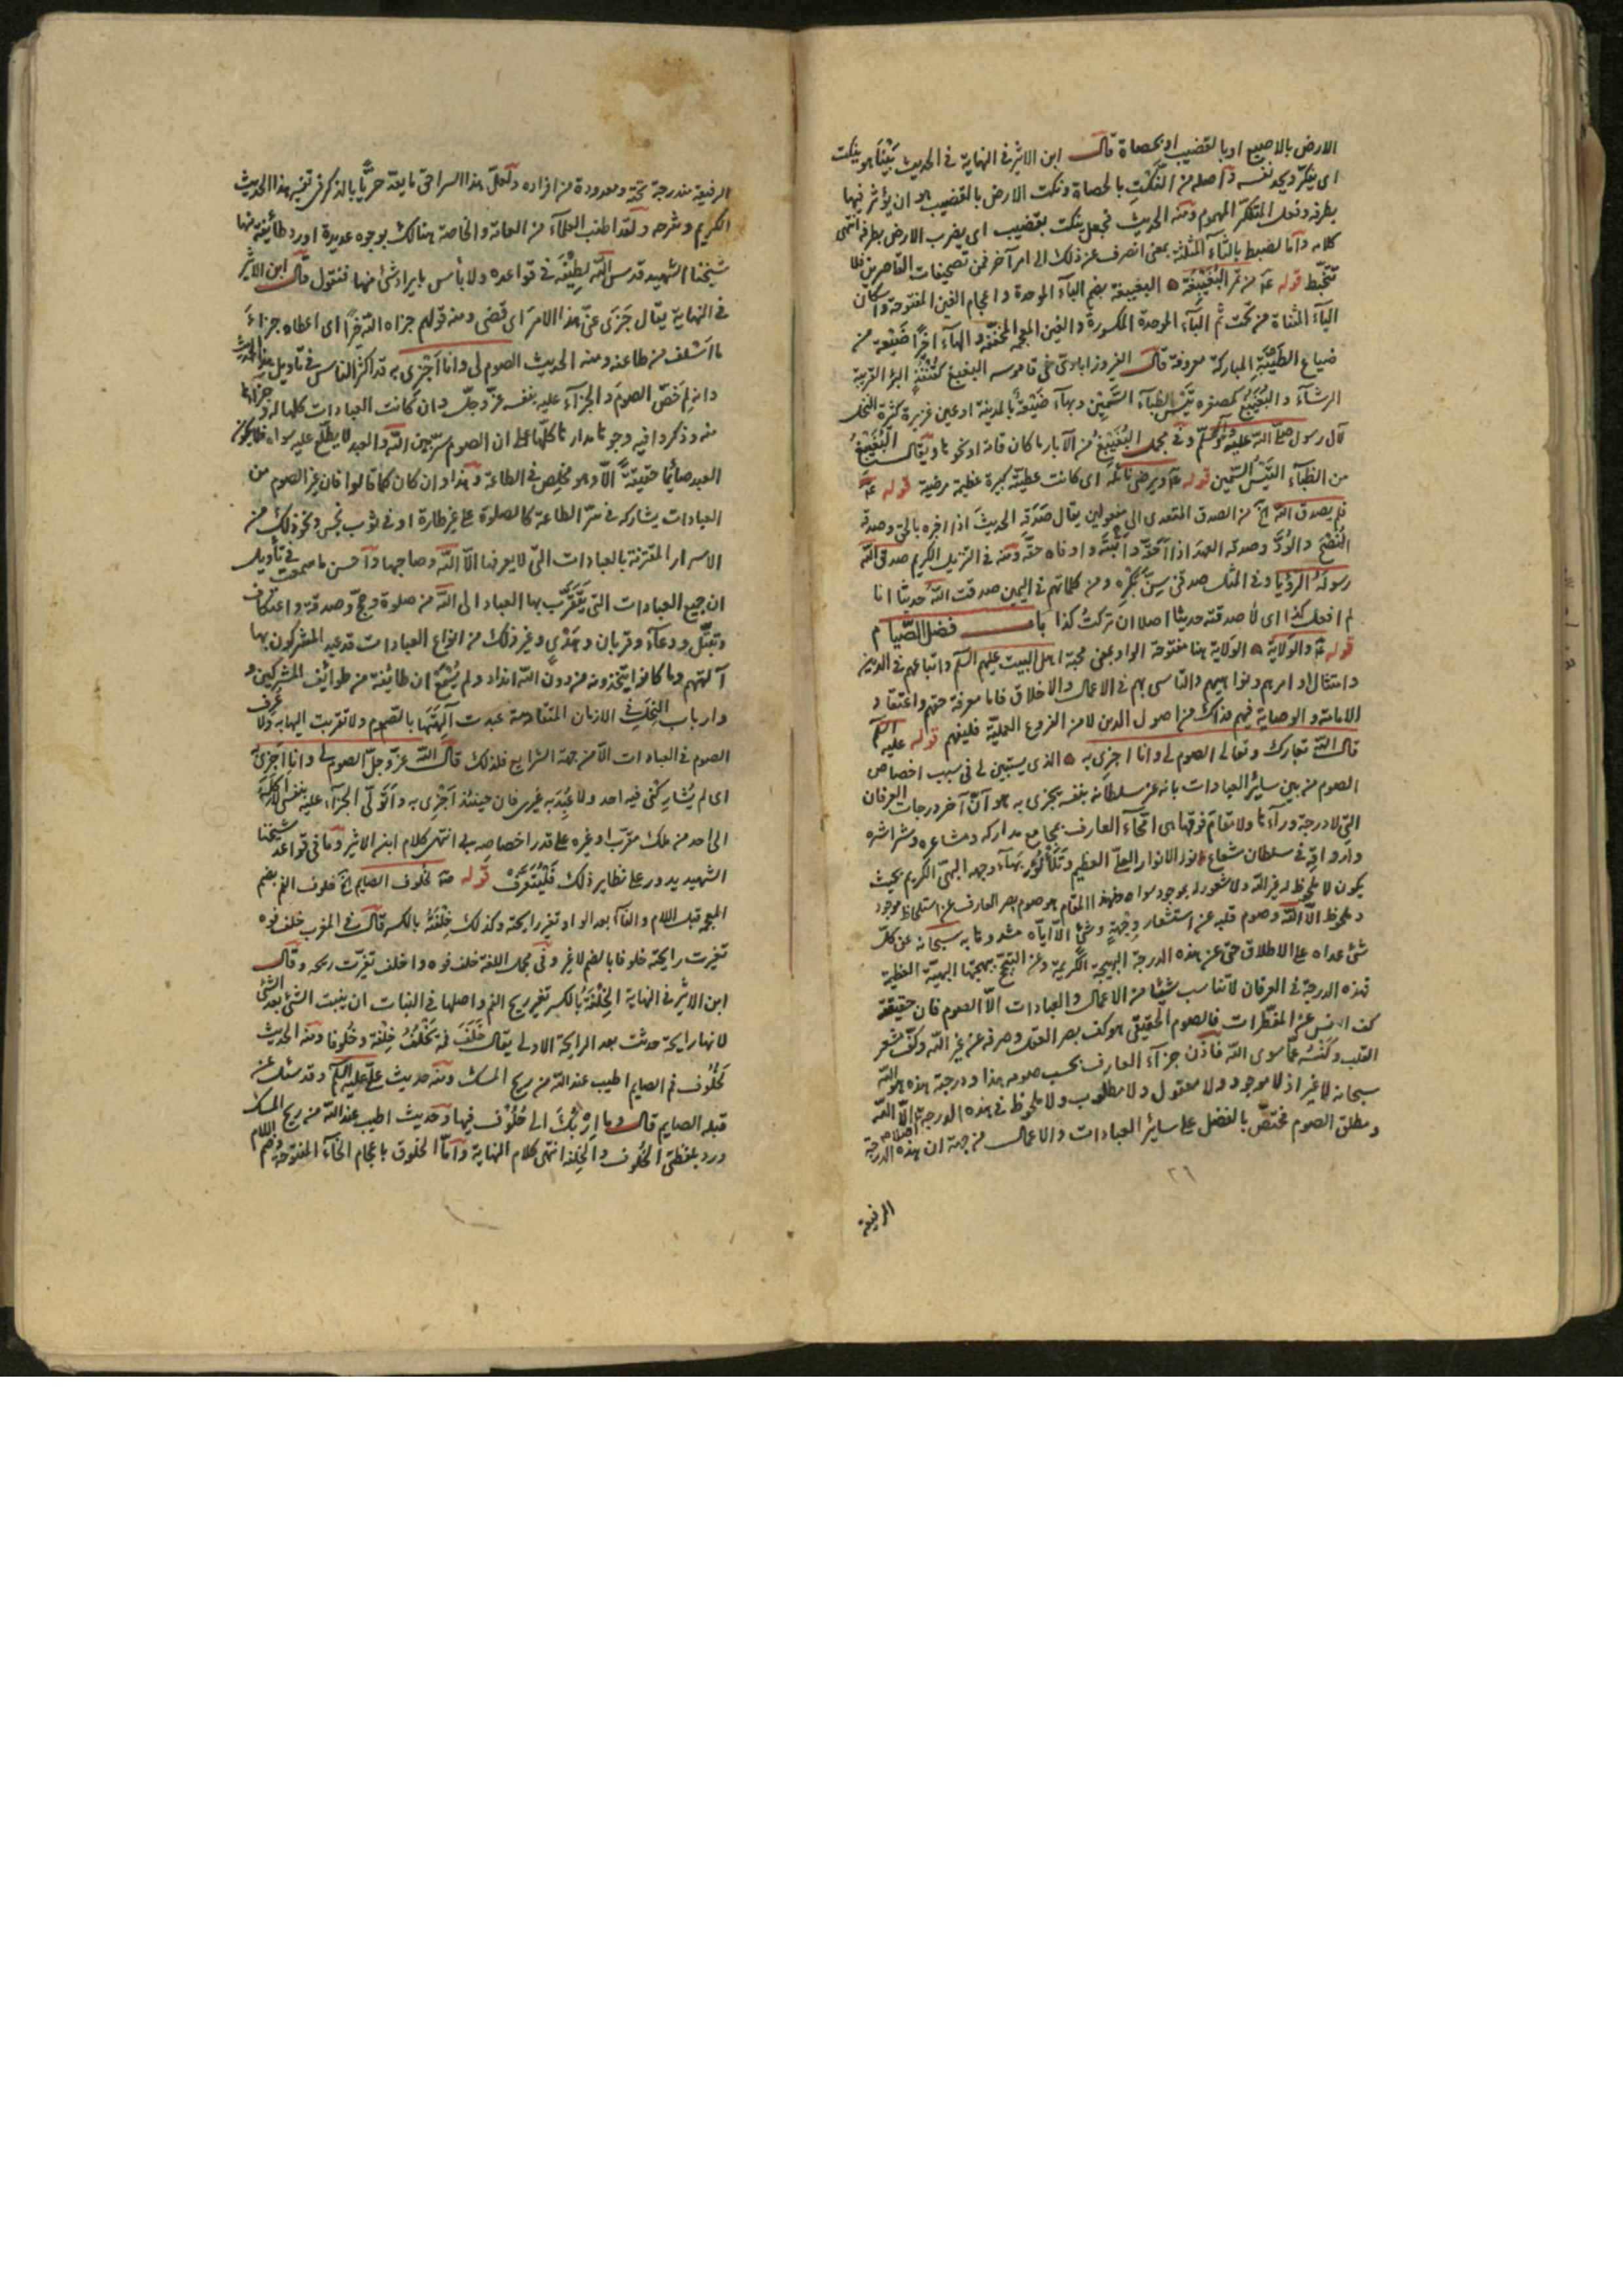 الارض بالاصبع او بالقضيب او بحصاة قال ابن الاثير في النهاية في الحديث بَيْنَا هو ينكت
اى يفكر ويحدث نفسه واصله من النَّكْتِ بالحصاة ونكت الارض بالقضيب هو ان يؤثر فيها
بطرفه وفعل المتفكر المهموم ومنه الحديث فجعل ينكت بقضيب اى يضرب الارض بطرفه انتهى
كلامه واما لضبط بالثاء المثلثة بمعنى انصرف عن ذلك الى امر آخر فمن تصحيفات القاصرين فلا
تتخبط قوله عه من تمر البُغَيْبِغَة ه البغيبغة بضم الباء الموحدة واعجام الغين المفتوحة واسكان
الياء المثناة من تحت ثم الباء الموحدة المكسورة والغين المعجمة المخففة والهاء اخرًا ضَيْعة من
ضياع الطَّيْبَةِ المباركة معروفة قال الفيروزابادى في قاموسه البغبغ كقُنْفُذٍ البئر القريبة
الرشاء والبُغَيْبِغُ كمصغره تَيْسُ الظباء السَّمِين وبهاء ضَيْعةٌ بالمدينة او عين غزيرة كثيرة النخل
لآل رسول الله صلى الله عليه وآله وسلم وفي مجمل البُغَيْبِغُ من الآبار ما كان قامة او نحوها ويقال البُغَيْبِغُ
من الظباء التَّيْسُ السَّمين قوله عه ويرضى نائله اى كانت عطيته كبيرة عظيمة مرضية قوله عه
فلم يصدق الله الخ من الصدق المتعدى الى مفعولين يقال صَدَقَه الحديثَ اذا اخبره بالحق وصدقه
النُّصْحَ والوُدَّ وصدقه العهدَ اذا احقّه واثبته واوفاه حقه ومنه في التنزيل الكريم صدق الله
رسولَهُ الرؤيا وفي المثل صدقنى سِنَّ بَكْرِه ومن كلماتهم في اليمين صدقت الله حديثا انا
لم افعل كذا اى لا صدقته حديثا اصلا ان تركتُ كذا باب فضل الصّيام
قوله عه والوَلاية ه الوَلاية هنا مفتوحة الواو بمعنى محبة اهل البيت عليهم السلم واتباعهم في الدين
وامتثال اوامرهم ونواهيهم والتاسى بهم في الاعمال والاخلاق فاما معرفة حقهم واعتقاد
الامامة والوصاية فيهم فذاك من اصول الدين لا من الفروع العملية فليفهم قوله عليه السلم
قال الله تبارك وتعالى الصوم لى وانا اجزى به ه الذى يستبين لى في سبب اختصاص
الصوم من بين ساير العبادات بانه عز سلطانه بنفسه يجزى به هو انّ آخر درجات العرفان
التى لا درجة وراءها ولا مقام فوقها هى امحاء العارف بمجامع مداركه ومشاعره وشراشره
وارواقه في سلطان شعاع نور الانوار العلىّ العظيم وتلألؤ بهاء وجهه البهىّ الكريم بحيث
يكون لا ملحوظ له غير الله ولا شعور له بموجود سواه فهذا المقام هو صوم بصر العارف عن استلحاظ موجود
وملحوظ الا الله وصوم قلبه عن استشعار وِجْهةٍ وشئ الا اياه مشدوها به سبحانه عن كل
شئ عداه على الاطلاق حتى عن هذه الدرجة البهيجة الكريمة وعن التبجّح ببهجتها البهيّة العظيمة
فهذه الدرجة في العرفان لا تناسب شيئا من الاعمال والعبادات الا الصوم فان حقيقته
كف النفس عن المفطرات فالصوم الحقيقى هو كف بصر العقل وصرفه عن غير الله وكفّ شعر
القلب وكَنْسُه عمّا سوى الله فاذن جزاء العارف بحسب صومه هذا ودرجته هذه هو الله
سبحانه لا غير اذ لا موجود ولا معقول ولا مطلوب ولا ملحوظ في هذه الدرجة الا الله
ومطلق الصوم مختصّ بالفضل على سائر العبادات والاعمال من جهة ان هذه الدرجة
٢٦
الرفيعة
الرفيعة مندرجة تحته ومعدودة من افراده ولعلّ هذا السر احق ما يعدّ حريّا بالذكر في تفسير هذا الحديث
الكريم وشرحه ولقد اطنب العلماء من العامة والخاصة هنالك بوجوه عديدة اورد طائفة منها
شيخنا الشهيد قدس الله لطيفه في قواعده ولا باس بايراد شئ منها فنقول قال ابن الاثير
في النهاية يقال جَزَى عنّى هذا الامرَ اى قضى ومنه قولهم جزاه الله خيرًا اى اعطاه جزاءَ
ما اسْلف من طاعته ومنه الحديث الصوم لى وانا اَجْزى به قد اكثر الناس في تاويل هذا الحديث
وانه لِمَ خَصّ الصومَ والجزاء عليه بنفسه عزّ وجلّ وان كانت العبادات كلها له وجزاءها
منه وذكروا فيه وجوها مدارها كلها على ان الصوم سرّ بين الله والعبد لا يطّلع عليه سواه فلا يكون
العبد صائما حقيقةً الا وهو مخلِص في الطاعة وهذا وان كان كما قالوا فان غير الصوم من
العبادات يشاركه في سرّ الطاعة كالصلوة على غير طهارة او في ثوب نجس ونحو ذلك من
الاسرار المقترنة بالعبادات التى لا يعرفها الا الله وصاحبها واحسن ما سمعت في تأويل
ان جميع العبادات التى يتَقَرَّب بها العباد الى الله من صلوة وحج وصدقة واعتكاف
وتبتّل ودعاء وقربان وهَدْى وغير ذلك من انواع العبادات قد عبد المشركون بها
آلهتهم وما كانوا يتخذونه من دون الله اندادا ولم يُسْمَع ان طائفة من طوائف المشركين
وارباب النحل في الازمان المتقادمة عبدت آلهتها بالصّوم ولا تقربت اليها به ولا عُرِف
الصوم في العبادات الا من جهة الشرايع فلذلك قال الله عزّ وجلّ الصوم لى وانا اَجْزى به
اى لم يُشارِكْنى فيه احد ولا عُبِدَ به غيرى فان حينئذ اَجْزى به واَتولّى الجزاء عليه بنفسى لا اَكِلُه
الى احد من ملك مقرّب او غيره على قدر اختصاصه بى انتهى كلام ابن الاثير وما في قواعد شيخنا
الشهيد يدور على نظاير ذلك فَلْيُتَعَرَّفْ قوله عه لخلوف الصايم الخ خلوف الفم بضم
المعجمة قبل اللام والفاء بعد الواو تغير رايحته وكذلك خِلْفَتُه بالكسر قال في المغرب خلف فوه
تغيرت رايحته خلوفا بالضم لا غير وفي مجمل اللغة خلف فوه واخلف تغيّرت ريحه وقال
ابن الاثير في النهاية الخِلْفَةُ بالكسر تغير ريح الفم واصلها في النبات ان ينبت الشئ بعد الشئ
لانها رايحة حدثت بعد الرايحة الاولى يقال خَلَفَ فمه يَخْلُفُ خِلْفة وخُلُوفا ومنه الحديث
لَخُلُوف فم الصايم اطيب عند الله من ريح المسك ومنه حديث علىّ عليه السلم وقد سئل عن
قبلة الصايم قال وما اِرْبُكَ الى خُلُوف فيها وحديث اطيب عند الله من ريح المسك
ورد بلفظتى الخُلوف والخِلفة انتهى كلام النهاية واما الخلوق باعجام الخاء المفتوحة وضم اللام